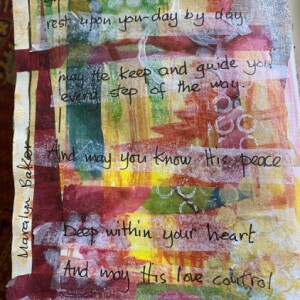 rest upon you day by day
may He keep and guide you
every step of the way.
And may you know His peace
Deep within your heart
And may His love control
Maralyn Baker